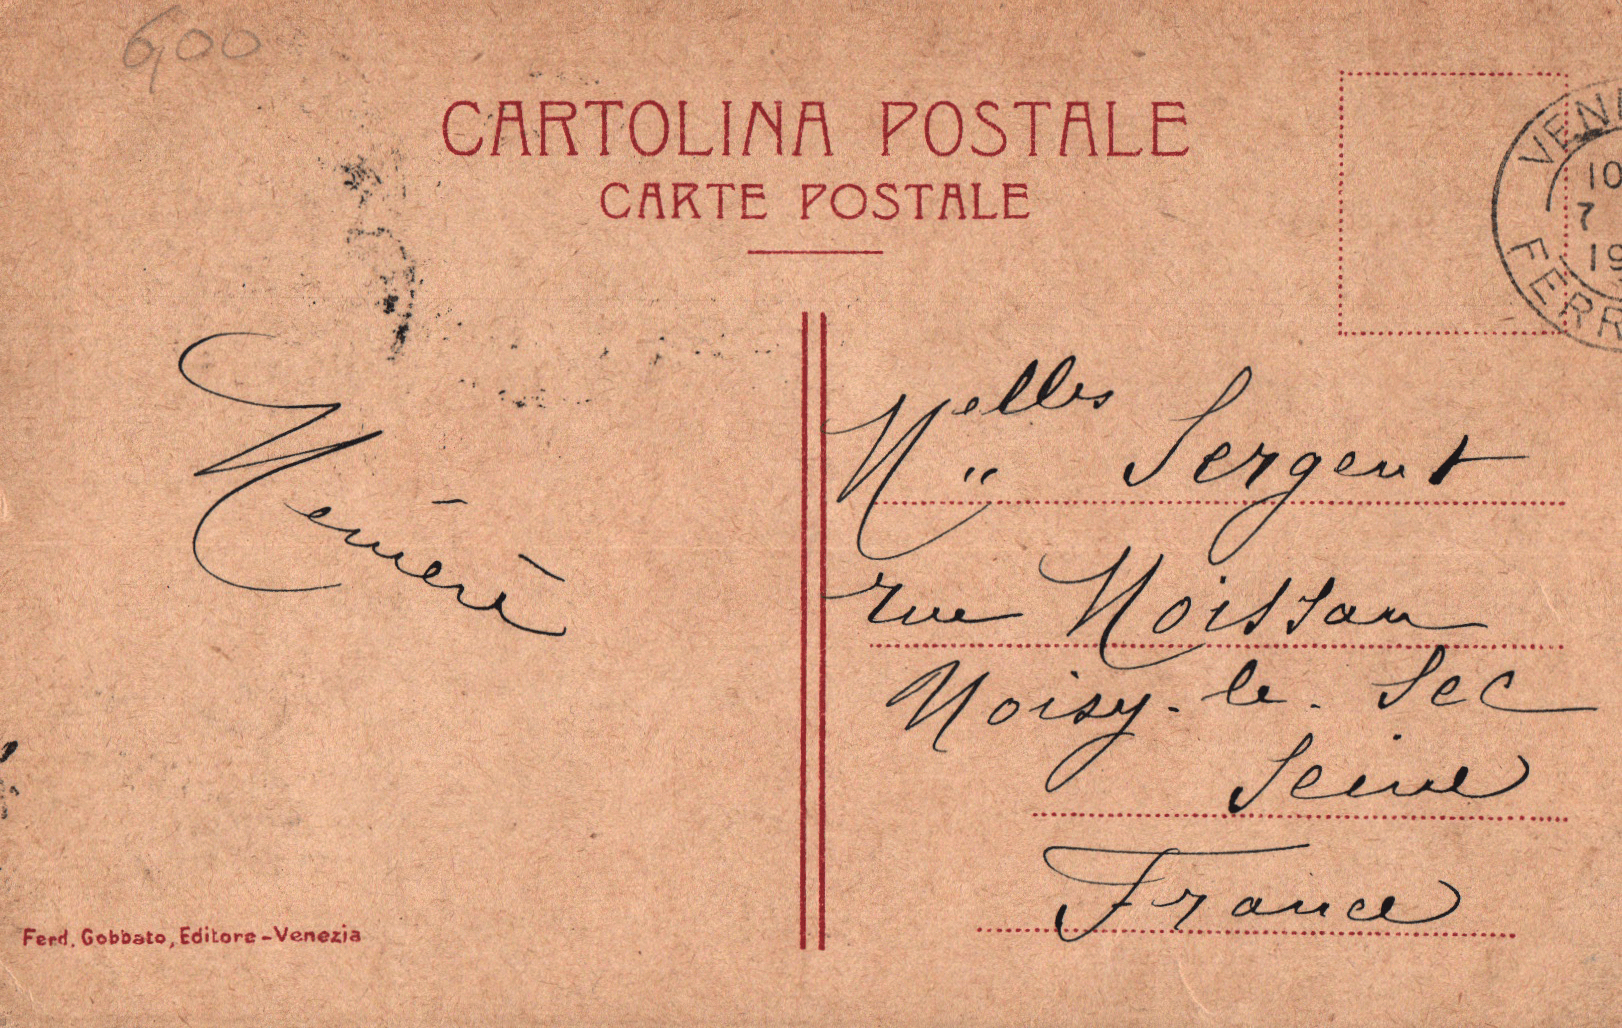 6,00
CARTOLINA POSTALE
CARTE POSTALE
VEN
10
7
19
FERR
Melles Sergent
"
rue Moissan
Noisy-le-Sec
Seine
France
Ferd. Gobbato, Editore-Venezia